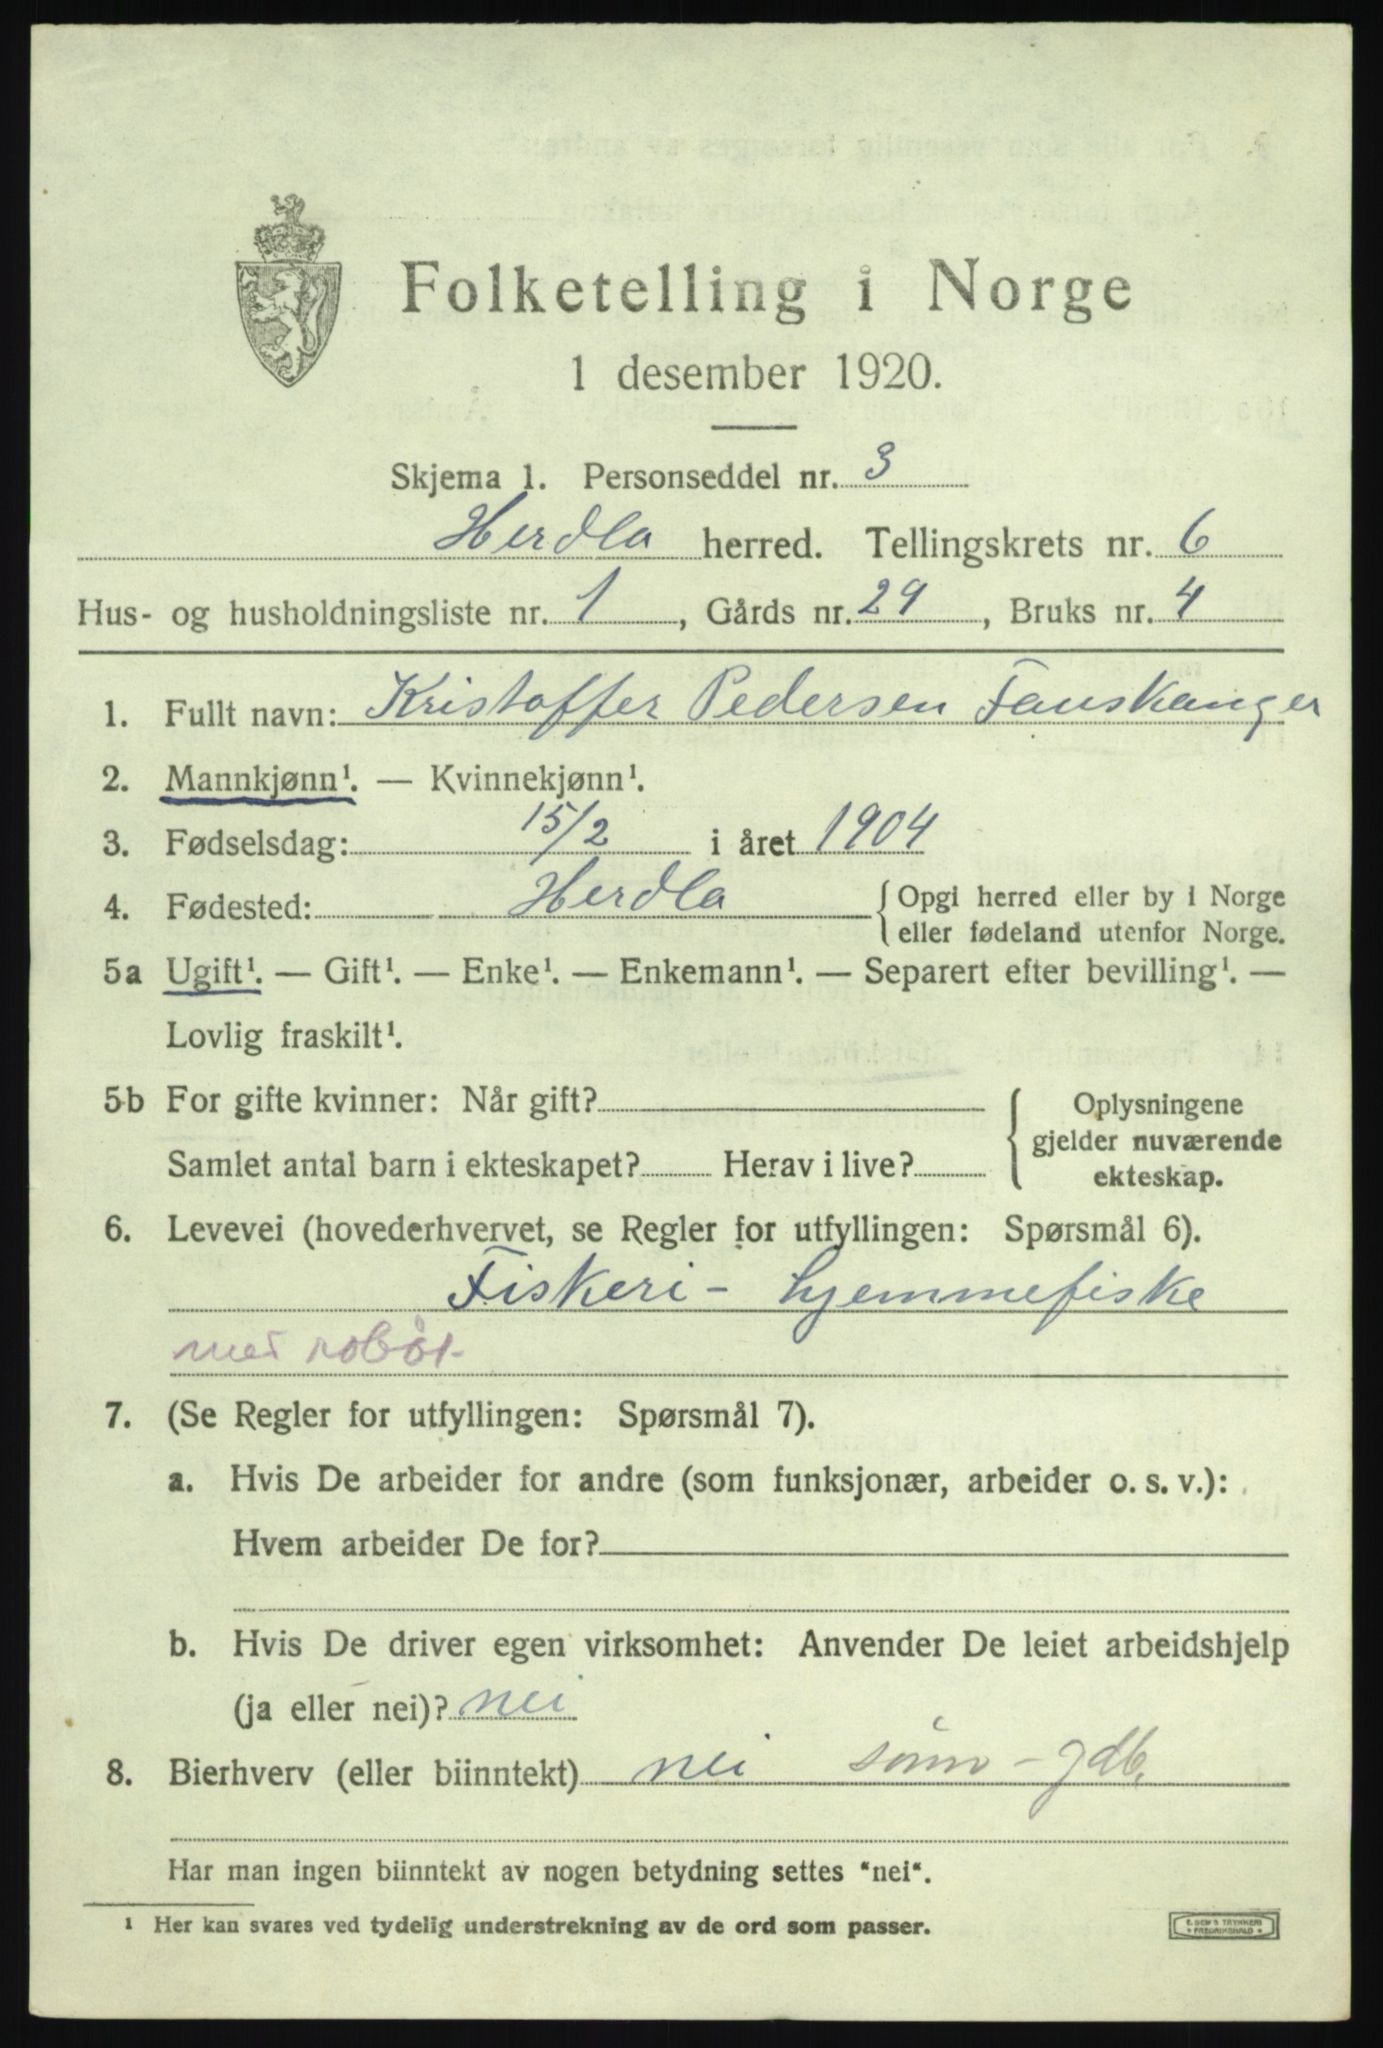 Folketelling i Norge
1 desember 1920.
Skjema 1. Personseddel nr. 3
Herdla herred. Tellingskrets nr. 6
Hus- og husholdningsliste nr. 1, Gårds nr. 29, Bruks nr. 4
1. Fullt navn: Kristoffer Pedersen Fauskanger
2. Mannkjønn¹. — Kvinnekjønn¹.
3. Fødselsdag: 15/2 i året 1904
4. Fødested: Herdla { Opgi herred eller by i Norge
eller fødeland utenfor Norge.
5a Ugift¹. — Gift¹. — Enke¹. — Enkemann¹. — Separert efter bevilling¹. —
Lovlig fraskilt¹.
5b For gifte kvinner: Når gift?
Samlet antal barn i ekteskapet? Herav i live?
{ Oplysningene
gjelder nuværende
ekteskap.
6. Levevei (hovederhvervet, se Regler for utfyllingen: Spørsmål 6).
Fiskeri - hjemmefiske
met robåt
7. (Se Regler for utfyllingen: Spørsmål 7).
a. Hvis De arbeider for andre (som funksjonær, arbeider o. s. v.):
Hvem arbeider De for?
b. Hvis De driver egen virksomhet: Anvender De leiet arbeidshjelp
(ja eller nei)? nei
8. Bierhverv (eller biinntekt) nei sønn - gdb.
Har man ingen biinntekt av nogen betydning settes "nei".
¹ Her kan svares ved tydelig understrekning av de ord som passer.
E. SEM'S TRYKKERI
FREDRIKSHALD